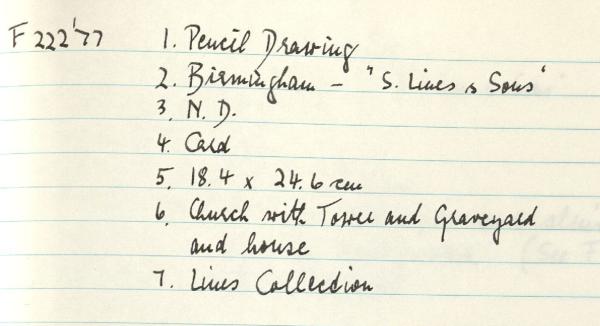 F 222'77 1. Pencil Drawing
2. Birmingham - "S. Lines & Sons"
3. N.D.
4. Card
5. 18.4 x 24.6 cm
6. Church with Tower and Graveyard
and house
7. Lines Collection